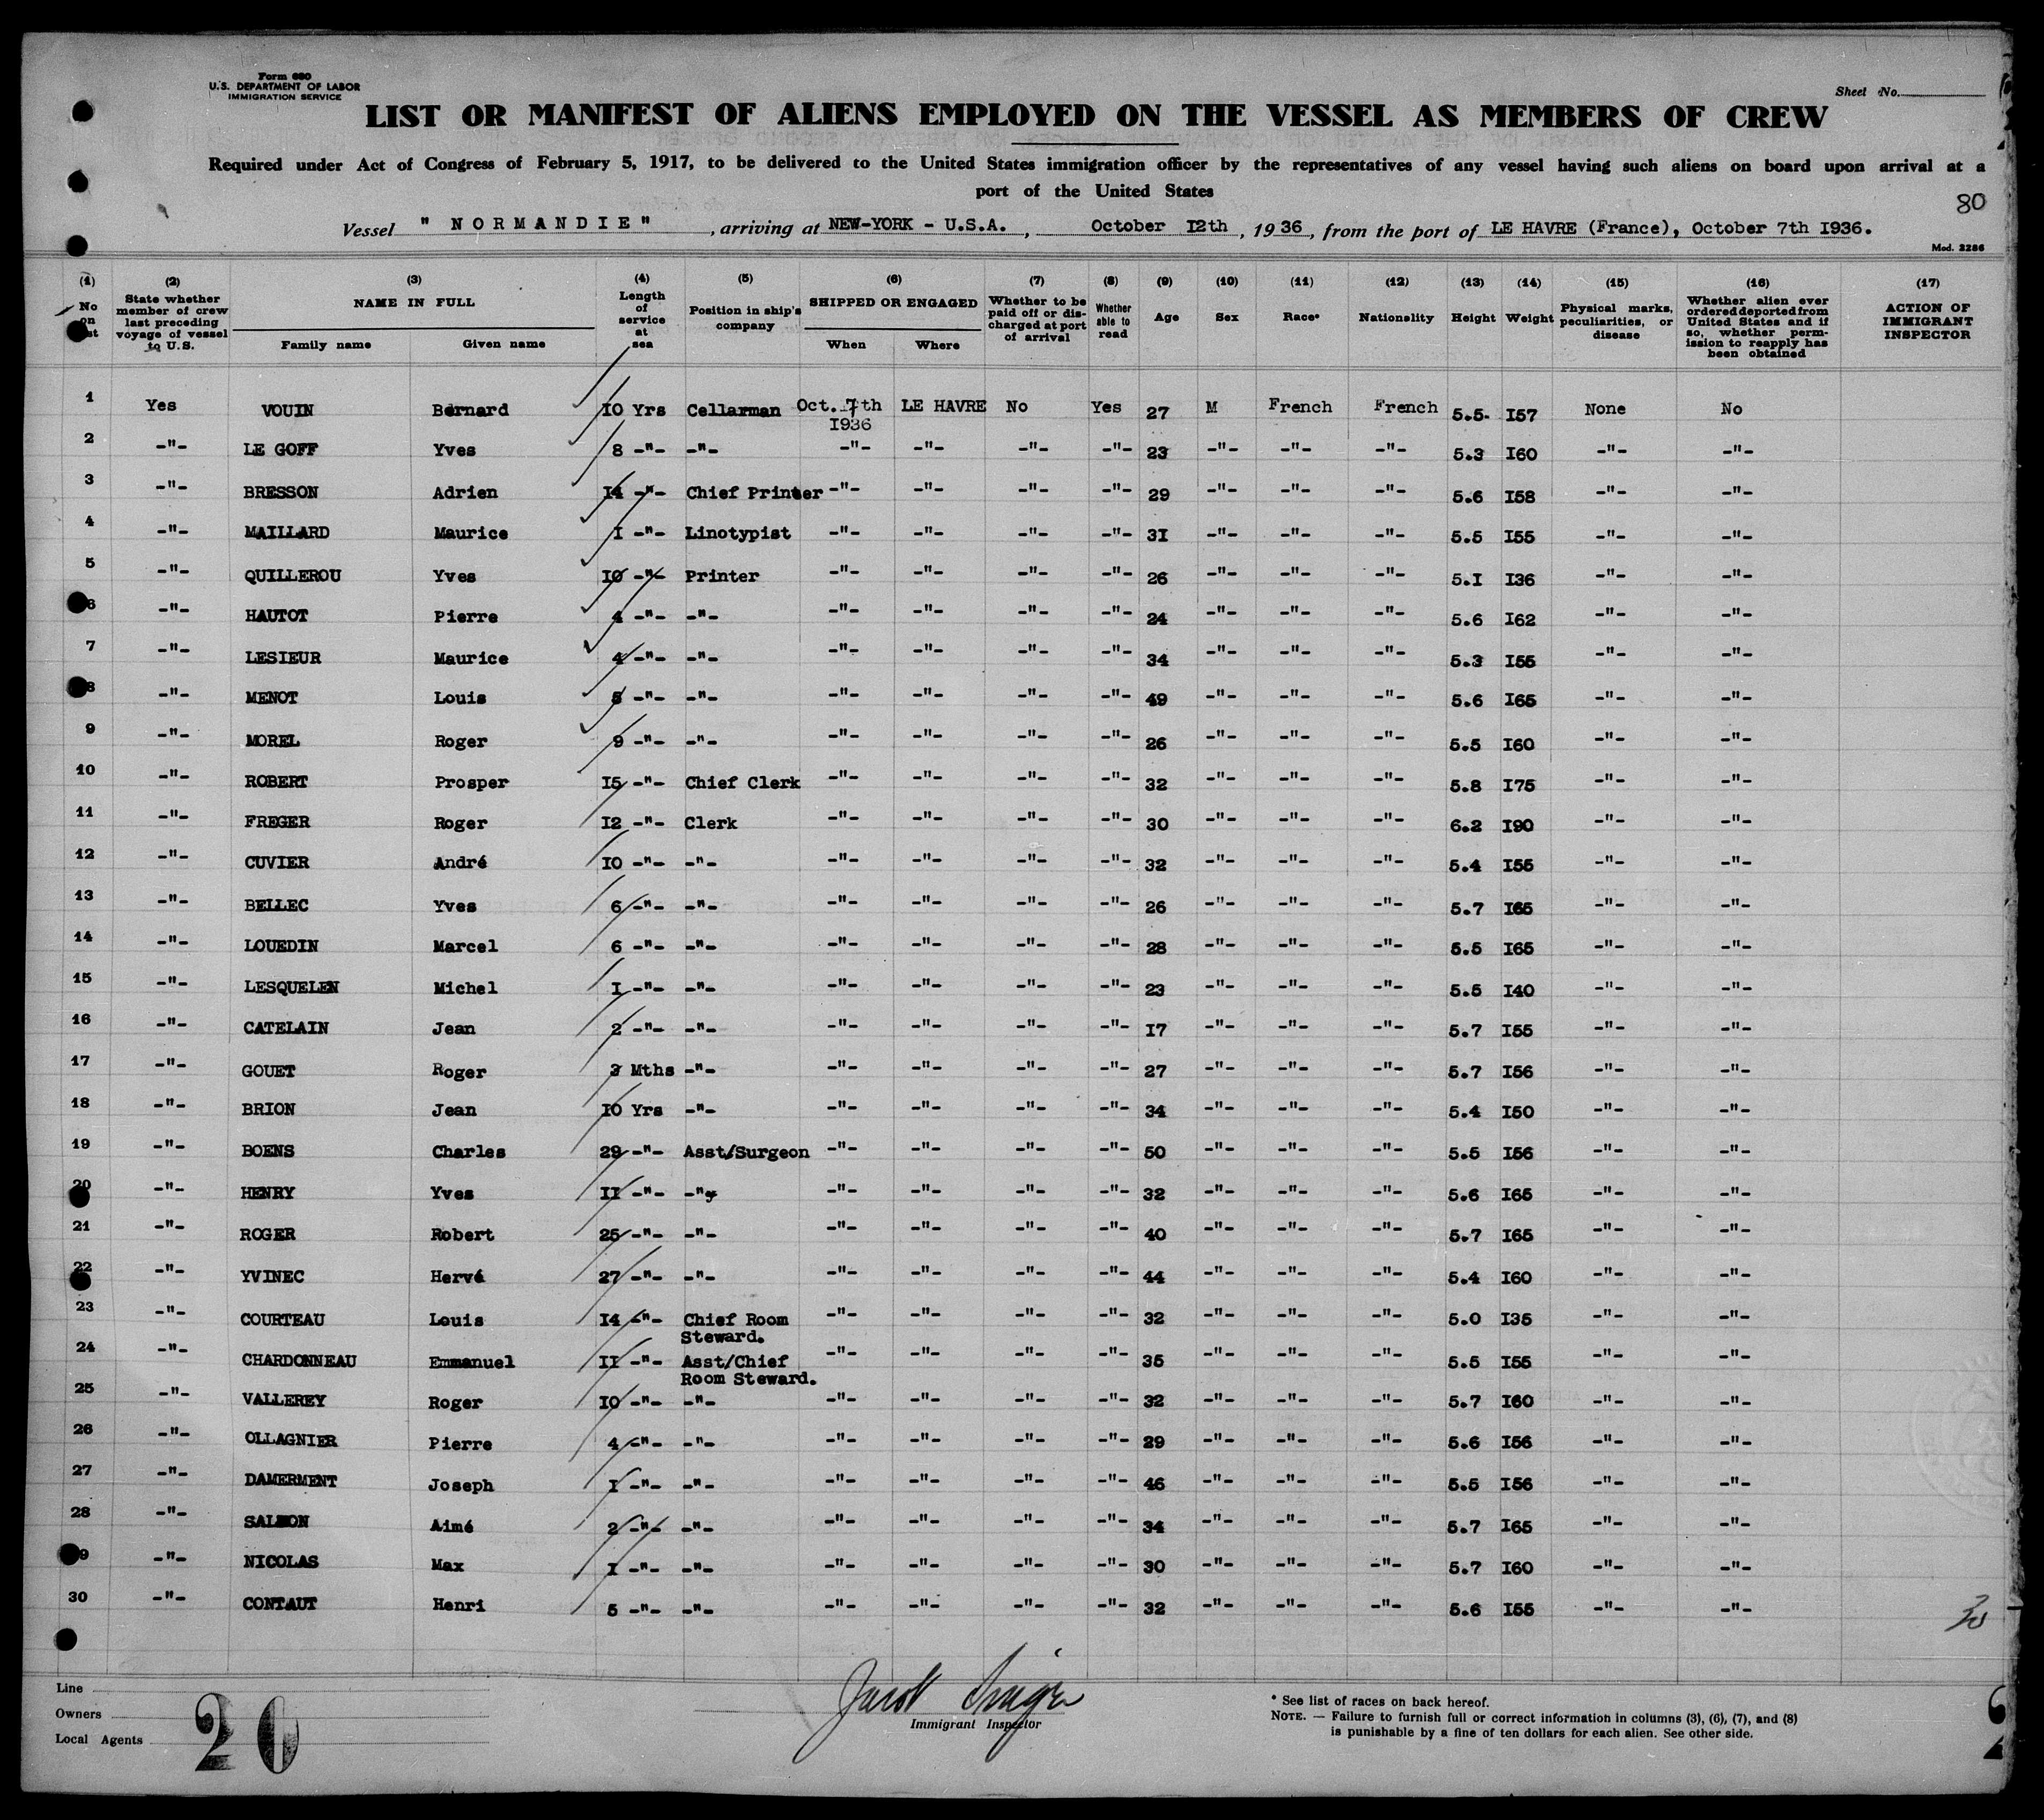 Form 680
U.S. DEPARTMENT OF LABOR
IMMIGRATION SERVICE
Sheet No.
LIST OR MANIFEST OF ALIENS EMPLOYED ON THE VESSEL AS MEMBERS OF CREW
Required under Act of Congress of February 5, 1917, to be delivered to the United States immigration officer by the representatives of any vessel having such aliens on board upon arrival at a
port of the United States
80
Vessel " NORMANDIE " , arriving at NEW-YORK - U.S.A. , October I2th , 1936 , from the port of LE HAVRE (France), October 7th I936.
Mod. 2286
(1) No on (2) State whether member of crew last preceding voyage of vessel to U.S. (3) NAME IN FULL Family name Given name (4) Length of service at sea (5) Position in ship's company (6) SHIPPED OR ENGAGED When Where (7) Whether to be paid off or discharged at port of arrival (8) Whether able to read (9) Age (10) Sex (11) Race* (12) Nationality (13) Height (14) Weight (15) Physical marks, peculiarities, or disease (16) Whether alien ever ordered deported from United States and if so, whether permission to reapply has been obtained (17) ACTION OF IMMIGRANT INSPECTOR
1 Yes VOUIN Bernard IO Yrs Cellarman Oct. 7th I936 LE HAVRE No Yes 27 M French French 5.5. I57 None No
2 -"- LE GOFF Yves 8 -"- -"- -"- -"- -"- -"- 23 -"- -"- -"- 5.3 I60 -"- -"-
3 -"- BRESSON Adrien I4 -"- Chief Printer -"- -"- -"- -"- 29 -"- -"- -"- 5.6 I58 -"- -"-
4 -"- MAILLARD Maurice I -"- Linotypist -"- -"- -"- -"- 3I -"- -"- -"- 5.5 I55 -"- -"-
5 -"- QUILLEROU Yves IO -"- Printer -"- -"- -"- -"- 26 -"- -"- -"- 5.I I36 -"- -"-
6 -"- HAUTOT Pierre 4 -"- -"- -"- -"- -"- -"- 24 -"- -"- -"- 5.6 I62 -"- -"-
7 -"- LESIEUR Maurice 4 -"- -"- -"- -"- -"- -"- 34 -"- -"- -"- 5.3 I55 -"- -"-
8 -"- MENOT Louis 5 -"- -"- -"- -"- -"- -"- 49 -"- -"- -"- 5.6 I65 -"- -"-
9 -"- MOREL Roger 9 -"- -"- -"- -"- -"- -"- 26 -"- -"- -"- 5.5 I60 -"- -"-
10 -"- ROBERT Prosper I5 -"- Chief Clerk -"- -"- -"- -"- 32 -"- -"- -"- 5.8 I75 -"- -"-
11 -"- FREGER Roger I2 -"- Clerk -"- -"- -"- -"- 30 -"- -"- -"- 6.2 I90 -"- -"-
12 -"- CUVIER André IO -"- -"- -"- -"- -"- -"- 32 -"- -"- -"- 5.4 I55 -"- -"-
13 -"- BELLEC Yves 6 -"- -"- -"- -"- -"- -"- 26 -"- -"- -"- 5.7 I65 -"- -"-
14 -"- LOUEDIN Marcel 6 -"- -"- -"- -"- -"- -"- 28 -"- -"- -"- 5.5 I65 -"- -"-
15 -"- LESQUELEN Michel I -"- -"- -"- -"- -"- -"- 23 -"- -"- -"- 5.5 I40 -"- -"-
16 -"- CATELAIN Jean 2 -"- -"- -"- -"- -"- -"- I7 -"- -"- -"- 5.7 I55 -"- -"-
17 -"- GOUET Roger 3 Mths -"- -"- -"- -"- -"- 27 -"- -"- -"- 5.7 I56 -"- -"-
18 -"- BRION Jean IO Yrs -"- -"- -"- -"- -"- 34 -"- -"- -"- 5.4 I50 -"- -"-
19 -"- BOENS Charles 29 -"- Asst/Surgeon -"- -"- -"- -"- 50 -"- -"- -"- 5.5 I56 -"- -"-
20 -"- HENRY Yves II -"- -"- -"- -"- -"- -"- 32 -"- -"- -"- 5.6 I65 -"- -"-
21 -"- ROGER Robert 25 -"- -"- -"- -"- -"- -"- 40 -"- -"- -"- 5.7 I65 -"- -"-
22 -"- YVINEC Hervé 27 -"- -"- -"- -"- -"- -"- 44 -"- -"- -"- 5.4 I60 -"- -"-
23 -"- COURTEAU Louis I4 -"- Chief Room Steward. -"- -"- -"- -"- 32 -"- -"- -"- 5.0 I35 -"- -"-
24 -"- CHARDONNEAU Emmanuel II -"- Asst/Chief Room Steward. -"- -"- -"- -"- 35 -"- -"- -"- 5.5 I55 -"- -"-
25 -"- VALLEREY Roger IO -"- -"- -"- -"- -"- -"- 32 -"- -"- -"- 5.7 I60 -"- -"-
26 -"- OLLAGNIER Pierre 4 -"- -"- -"- -"- -"- -"- 29 -"- -"- -"- 5.6 I56 -"- -"-
27 -"- DAMERMENT Joseph I -"- -"- -"- -"- -"- -"- 46 -"- -"- -"- 5.5 I56 -"- -"-
28 -"- SALMON Aimé 2 -"- -"- -"- -"- -"- -"- 34 -"- -"- -"- 5.7 I65 -"- -"-
29 -"- NICOLAS Max I -"- -"- -"- -"- -"- -"- 30 -"- -"- -"- 5.7 I60 -"- -"-
30 -"- CONTAUT Henri 5 -"- -"- -"- -"- -"- -"- 32 -"- -"- -"- 5.6 I55 -"- -"-
30
Line
Owners
Local Agents
20
Jacob
Immigrant Inspector
* See list of races on back hereof.
NOTE. — Failure to furnish full or correct information in columns (3), (6), (7), and (8)
is punishable by a fine of ten dollars for each alien. See other side.